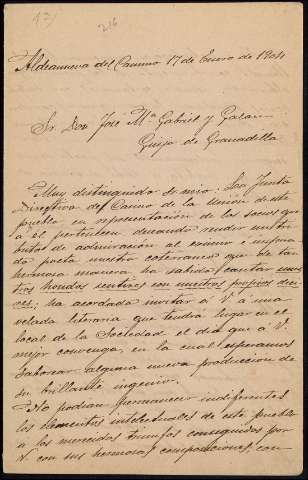 216
Aldeanueva del Camino 17 de Enero de 1904
Sr Don José Mª Gabriel y Galan
Guijo de Granadilla
Muy distinguido Sr mio: La Junta
Directiva del Casino de la Union de este
pueblo en representacion de los socios que
á él pertenecen deseando rendir un
tributo de admiracion al eximio é inspira
do poeta nuestro coterraneo que de tan
hermosa manera ha sabido cantar nues
tros hondos sentires con nuestros propios deci
res; ha acordado invitar á V. á una
velada literaria que tendrá lugar en el
local de la Sociedad el dia que á V.
mejor convenga, en la cual esperamos
saborear alguna nueva produccion de
su brillante ingenio.
No podian permanecer indiferentes
los elementos intelectuales de este pueblo
á los merecidos triunfos conseguidos por
V. con sus hermosas composiciones, con